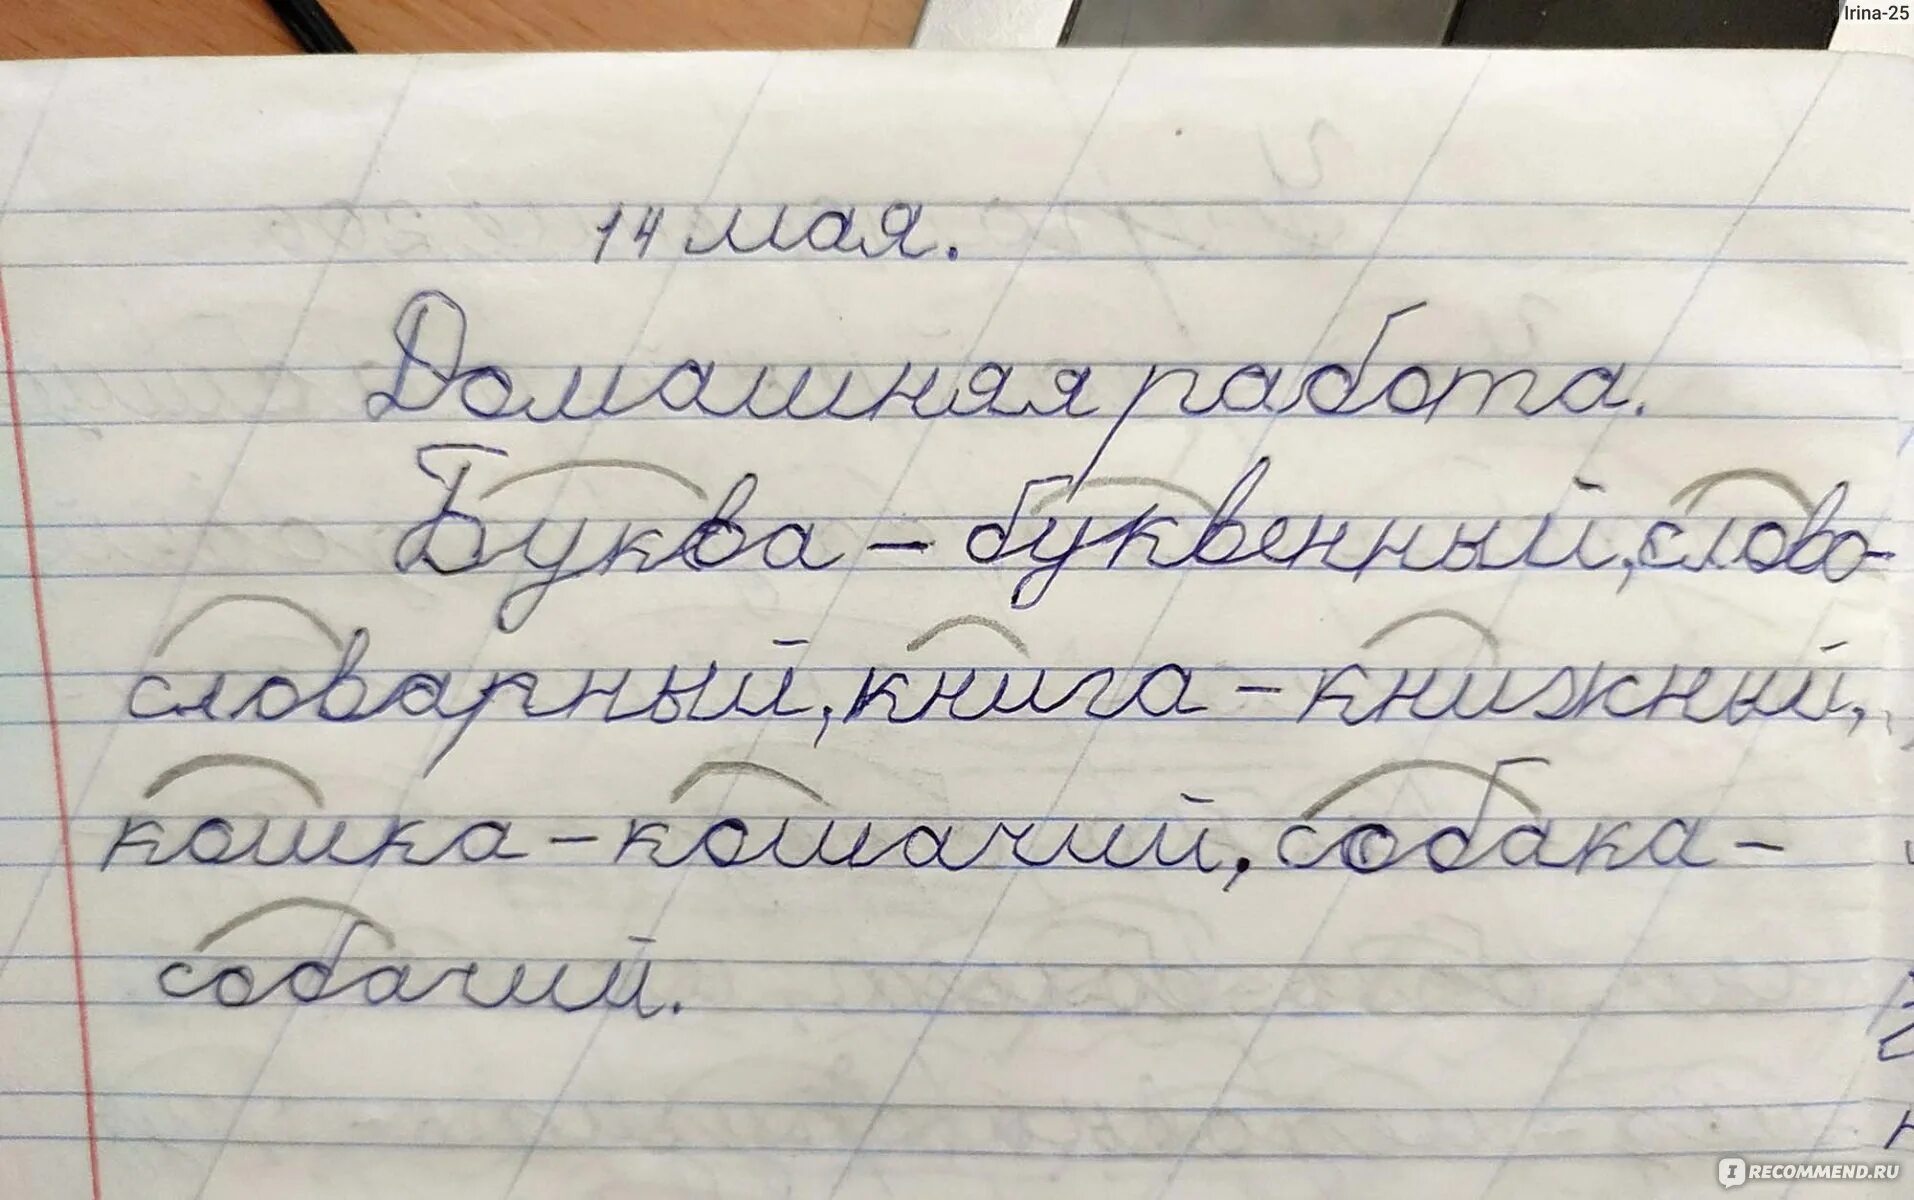 Irina-25
14 мая.
Домашняя работа.
Буква - буквенный, слово-
словарный, книга - книжный,
кошка - кошачий, собака -
собачий.
I RECOMMEND.RU